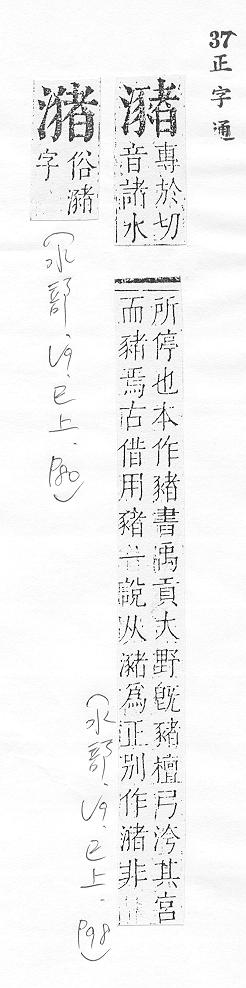 37正字通
瀦
專於切
音諸水
所停也本作豬書禹貢大野旣豬檀弓洿其宮
而豬焉古借用豬一說从瀦爲正別作潴非
(水部.V9.巳上.P98)
潴
俗瀦
字
(水部.V9.巳上.P80)